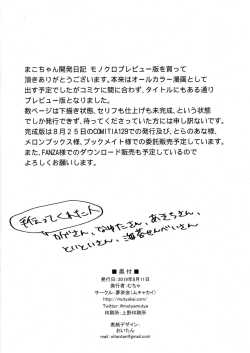 まこちゃん開発日記 モノクロプレビュー版を買って
頂きありがとうございます。本来はオールカラー漫画として
出す予定でしたがコミケに間に合わず、タイトルにもある通り
プレビュー版となりました。
数ページは下描き状態、セリフも仕上げも未完成、という状態
でしか発行できず、待ってくださっていた方には申し訳ないです。
完成版は8月25日のCOMITIA129での発行及び、とらのあな様、
メロンブックス様、ブックメイト様での委託販売も予定しています。
また、FANZA様でのダウンロード販売も予定しているので
よろしくお願いします。
手伝ってくれた人
かがさん、なゆたさん、あきらさん、
といといさん、海苔せんべいさん
■ 奥付 ■
発行日:2019年8月11日
発行者:むちゃ
サークル:夢茶会(ムチャカイ)
http://mutyakai.com/
Twitter:@mutyamutya
印刷所:上野印刷所
表紙デザイン:
おいたん